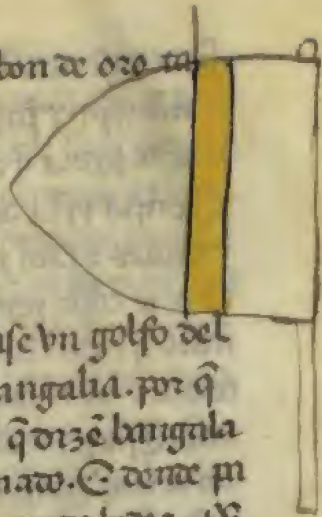 ton de oro ta
ase vn golfo del
angalia. por q̃
q̃ dizẽ bangala
nato. E dende pa